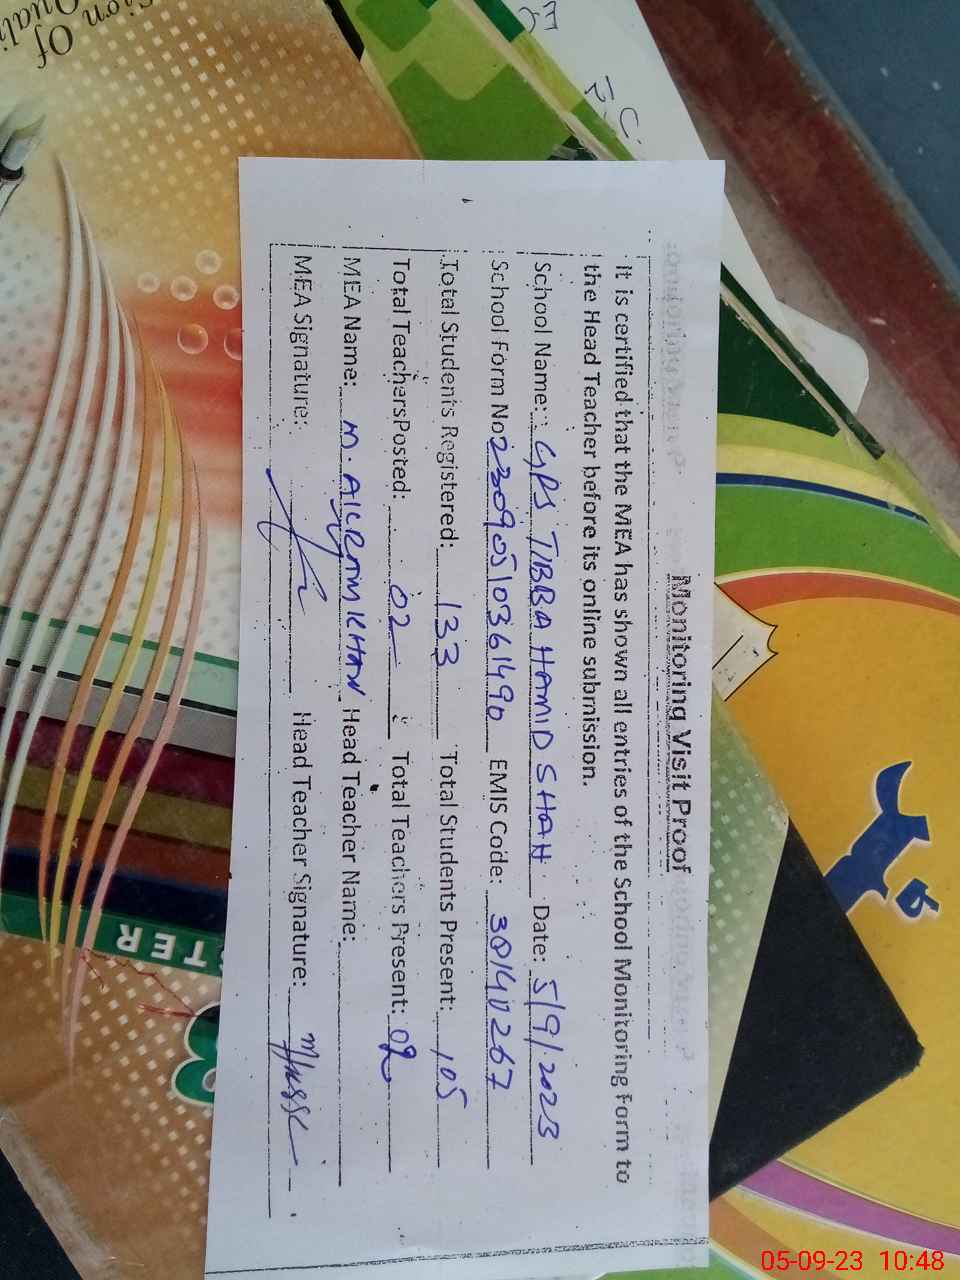 Monitoring Visit Proof
it is certified that the MEA has shown all entries of the School Monitoring Form to
the Head Teacher before its online submission.
School Name: GPS TIBBA HAMID SHAH. Date: 5/9/2023
School Form No 23090510361496 EMIS Code: 38140267
Total Students Registered: 133 Total Students Present: 105
Total Teachers Posted: 02 Total Teachers Present: 02
MEA Name: M. AIKRAM KHAN Head Teacher Name:
MEA Signature: Head Teacher Signature:
Of
TER
05-09-23 10:48